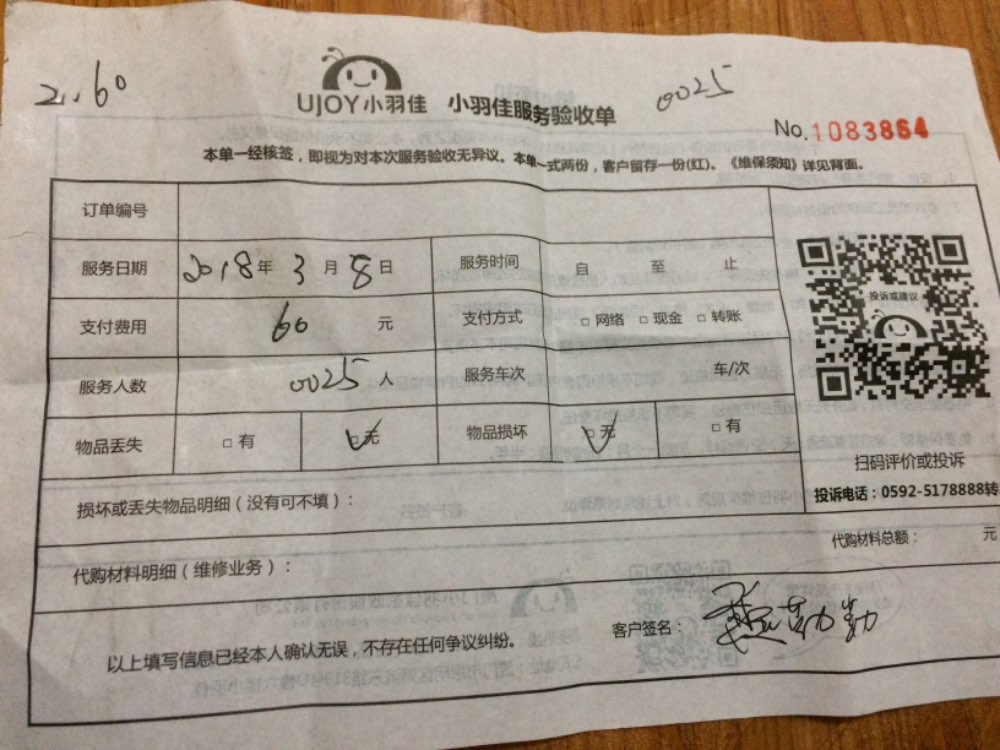 2..60
UJOY小羽佳 小羽佳服务验收单
0025
No.1083864
本单一经核签，即视为对本次服务验收无异议。本单一式两份，客户留存一份(红)。《维保须知》详见背面。
订单编号
服务日期 2018年 3月 8日 服务时间 自 至 止
投诉或建议
支付费用 60 元 支付方式 □网络 □现金 □转账
服务人数 0025 人 服务车次 车/次
物品丢失 □有 □无 物品损坏 □无 □有
扫码评价或投诉
投诉电话：0592-5178888转
损坏或丢失物品明细（没有可不填）：
代购材料明细（维修业务）： 代购材料总额： 元
以上填写信息已经本人确认无误，不存在任何争议纠纷。 客户签名： 勤勤